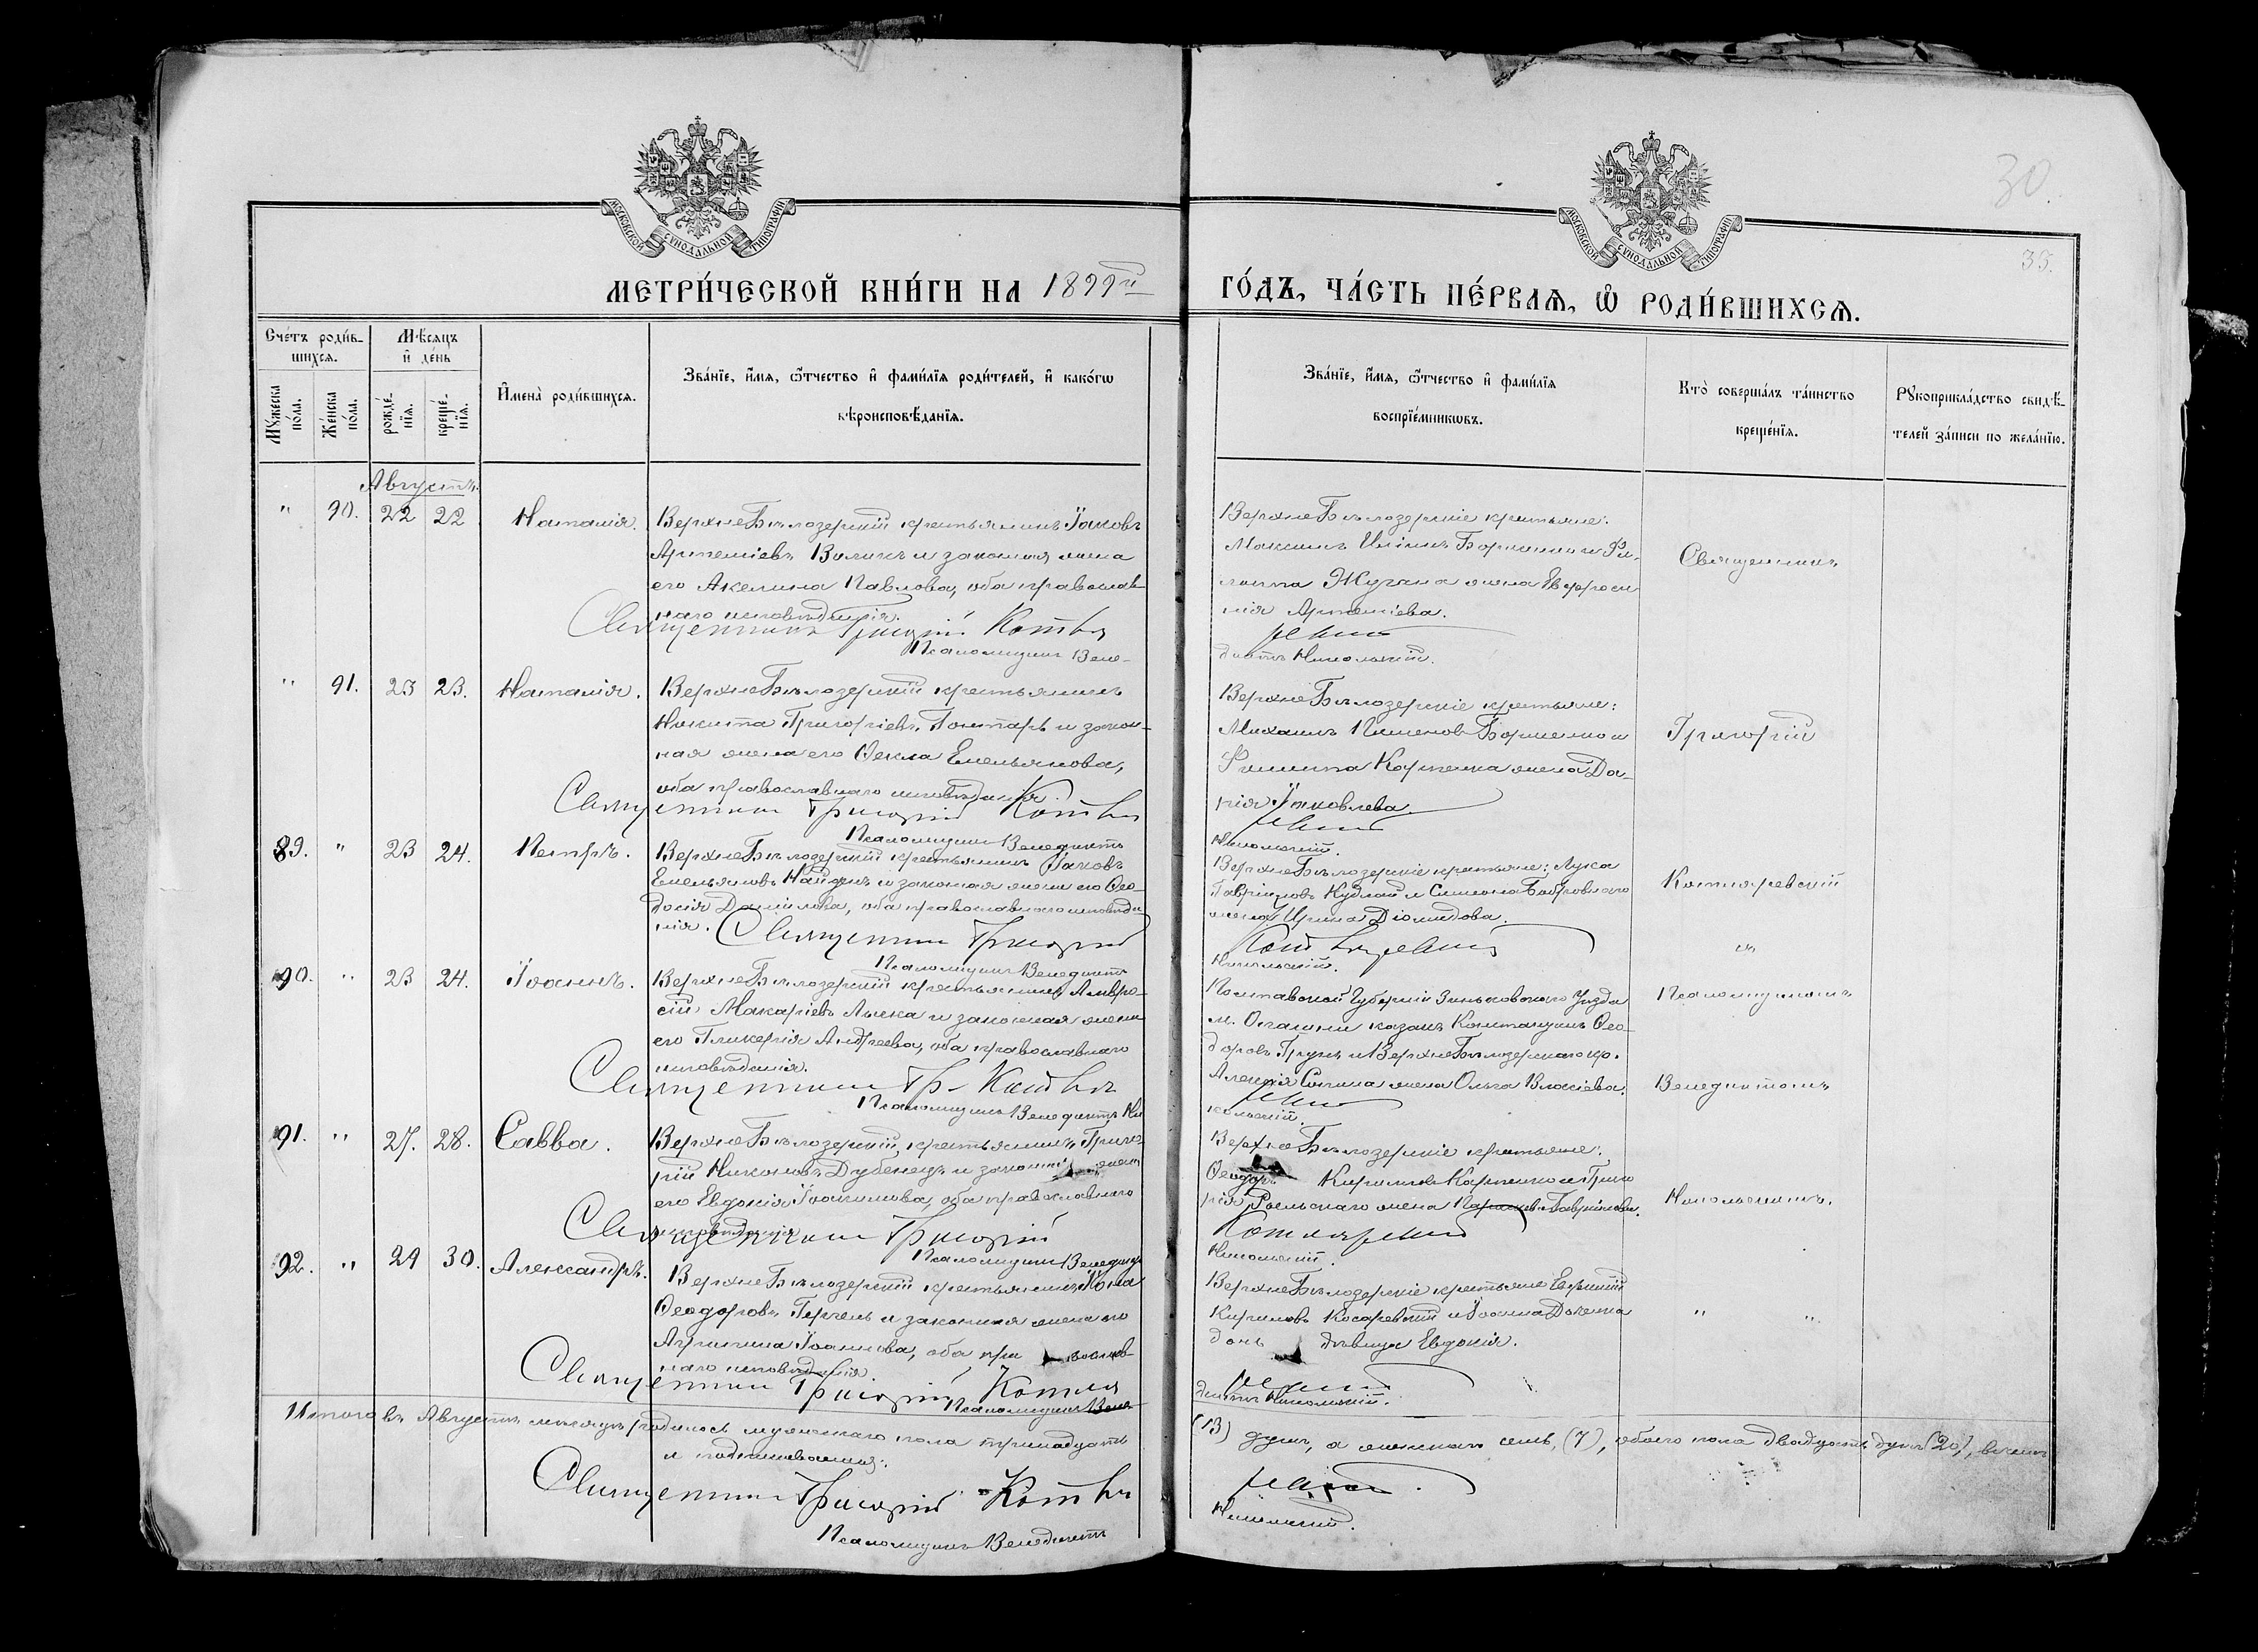 30.
35.
МОСКОВСКОЙ СѴНОДАЛЬНОЙ ТИПОГРАФІИ
МОСКОВСКОЙ СѴНОДАЛЬНОЙ ТИПОГРАФІИ
МЕТРИ́ЧЕСКОЙ КНИ́ГИ НА 1899й
ГО́ДЪ, ЧА́СТЬ ПЕ́РВАѦ, Ѡ҆ РОДИ́ВШИХСѦ.
Сче́тъ роди́в-
шихся.
Мꙋ́жеска по́ла.
Же́нска по́ла.
Мѣ́сяцъ
и҆ де́нь
рожде́-
нїя.
креще́-
нїя.
И҆мена̀ роди́вшихся.
Зва́нїе, и҆́мя, ѻ҆́тчество и҆ фами́лїя роди́телей, и҆ како́гѡ
вѣроисповѣ́данїя.
Зва́нїе, и҆́мя, ѻ҆́тчество и҆ фами́лїя
воспрїе́мникѡвъ.
Кто̀ соверша́лъ та́инство
креще́нїя.
Рꙋкоприкла́дство свидѣ́-
телей за́писи по жела́нїю.
Августъ.
" 90. 22 22 Наталія.
ВерхнеБѣлозерскій крестьянинъ Іаковъ
Артеміевъ Воликъ и законная жена
его Акелина Павлова, оба православ-
наго исповѣданія.
Священникъ Григорій Котля
Псаломщикъ Вене-
ВерхнеБѣлозерскіе крестьяне:
Максимъ Иліинъ и Фи-
липпа жена Евфроси
нія Артеміева.
ревскій
диктъ Никольскій.
Священникъ
" 91. 23 23. Наталія.
ВерхнеБѣлозерскій крестьянинъ
Никита Григоріевъ Гонтарь и закон-
ная жена его Ѳекла Емельянова,
оба православнаго исповѣданія.
Священникъ Григорій Котля
Псаломщикъ Венедиктъ
ВерхнеБѣлозерскіе крестьяне:
Михаилъ Пименовъ и
Филиппа Карпенка жена Да-
рія Іаковлева.
ревскій
Никольскій.
Григорій
89. " 23 24. Петръ.
ВерхнеБѣлозерскій крестьянинъ Іаковъ
Емельяновъ Найденъ и законная жена его Ѳео-
досія Даніилова, оба православнаго исповѣда-
нія. Священникъ Григорій
Псаломщикъ Венедиктъ
ВерхнеБѣлозерскіе крестьяне: Лука
Гавріиловъ Кудлай и Симеона Бобровнаго
жена Ирина Діомидова.
Котляревскій
Никольскій.
Котляревскій
съ
90. " 23 24. Іоаннъ.
ВерхнеБѣлозерскій крестьянинъ Амвро-
сій Макаріевъ Лыска и законная жена
его Гликерія Андреева, оба православнаго
исповѣданія.
Священникъ Гр. Котля
Псаломщикъ Венедиктъ Ни
Полтавской Губерніи Зиньковскаго Уѣзда
м. Опашни казакъ Константинъ Ѳео-
доровъ и ВерхнеБѣлозерскаго кр.
Алексія жена Ольга Власіева.
ревскій
кольскій.
Псаломщикомъ
Венедиктомъ
91. " 27. 28. Савва.
ВерхнеБѣлозерскій крестьянинъ Григо-
рій Никоновъ Дубенецъ и законная жена
его Евдокія Іоакимова, оба православнаго
исповѣданія.
Священникъ Григорій
Псаломщикъ Венедиктъ
ВерхнеБѣлозерскіе крестьяне:
Ѳеодоръ Кириловъ Карпенко и Григо
рія жена Гавріилова.
Котляревскій
Никольскій.
Никольскимъ.
92. " 29 30. Александръ.
ВерхнеБѣлозерскій крестьянинъ Іона
Ѳеодоровъ Гергель и законная жена его
Агрипина Іоаннова, оба православ-
наго исповѣданія.
Священникъ Григорій Котля
Псаломщикъ Вене-
ВерхнеБѣлозерскіе крестьяне Евфимій
Кириловъ Косаревскій и Іоанна
дочь дѣвица Евдокія.
ревскій
диктъ Никольскій.
" "
Итого въ Августѣ мѣсяцѣ родилось мужескаго пола тринадцать
(13) душъ, а женскаго семь (7), обоего пола двадцать душъ (20), въ чемъ
и подписываемся:
Священникъ Григорій Котля
ревскій.
Псаломщикъ Венедиктъ
Никольскій.